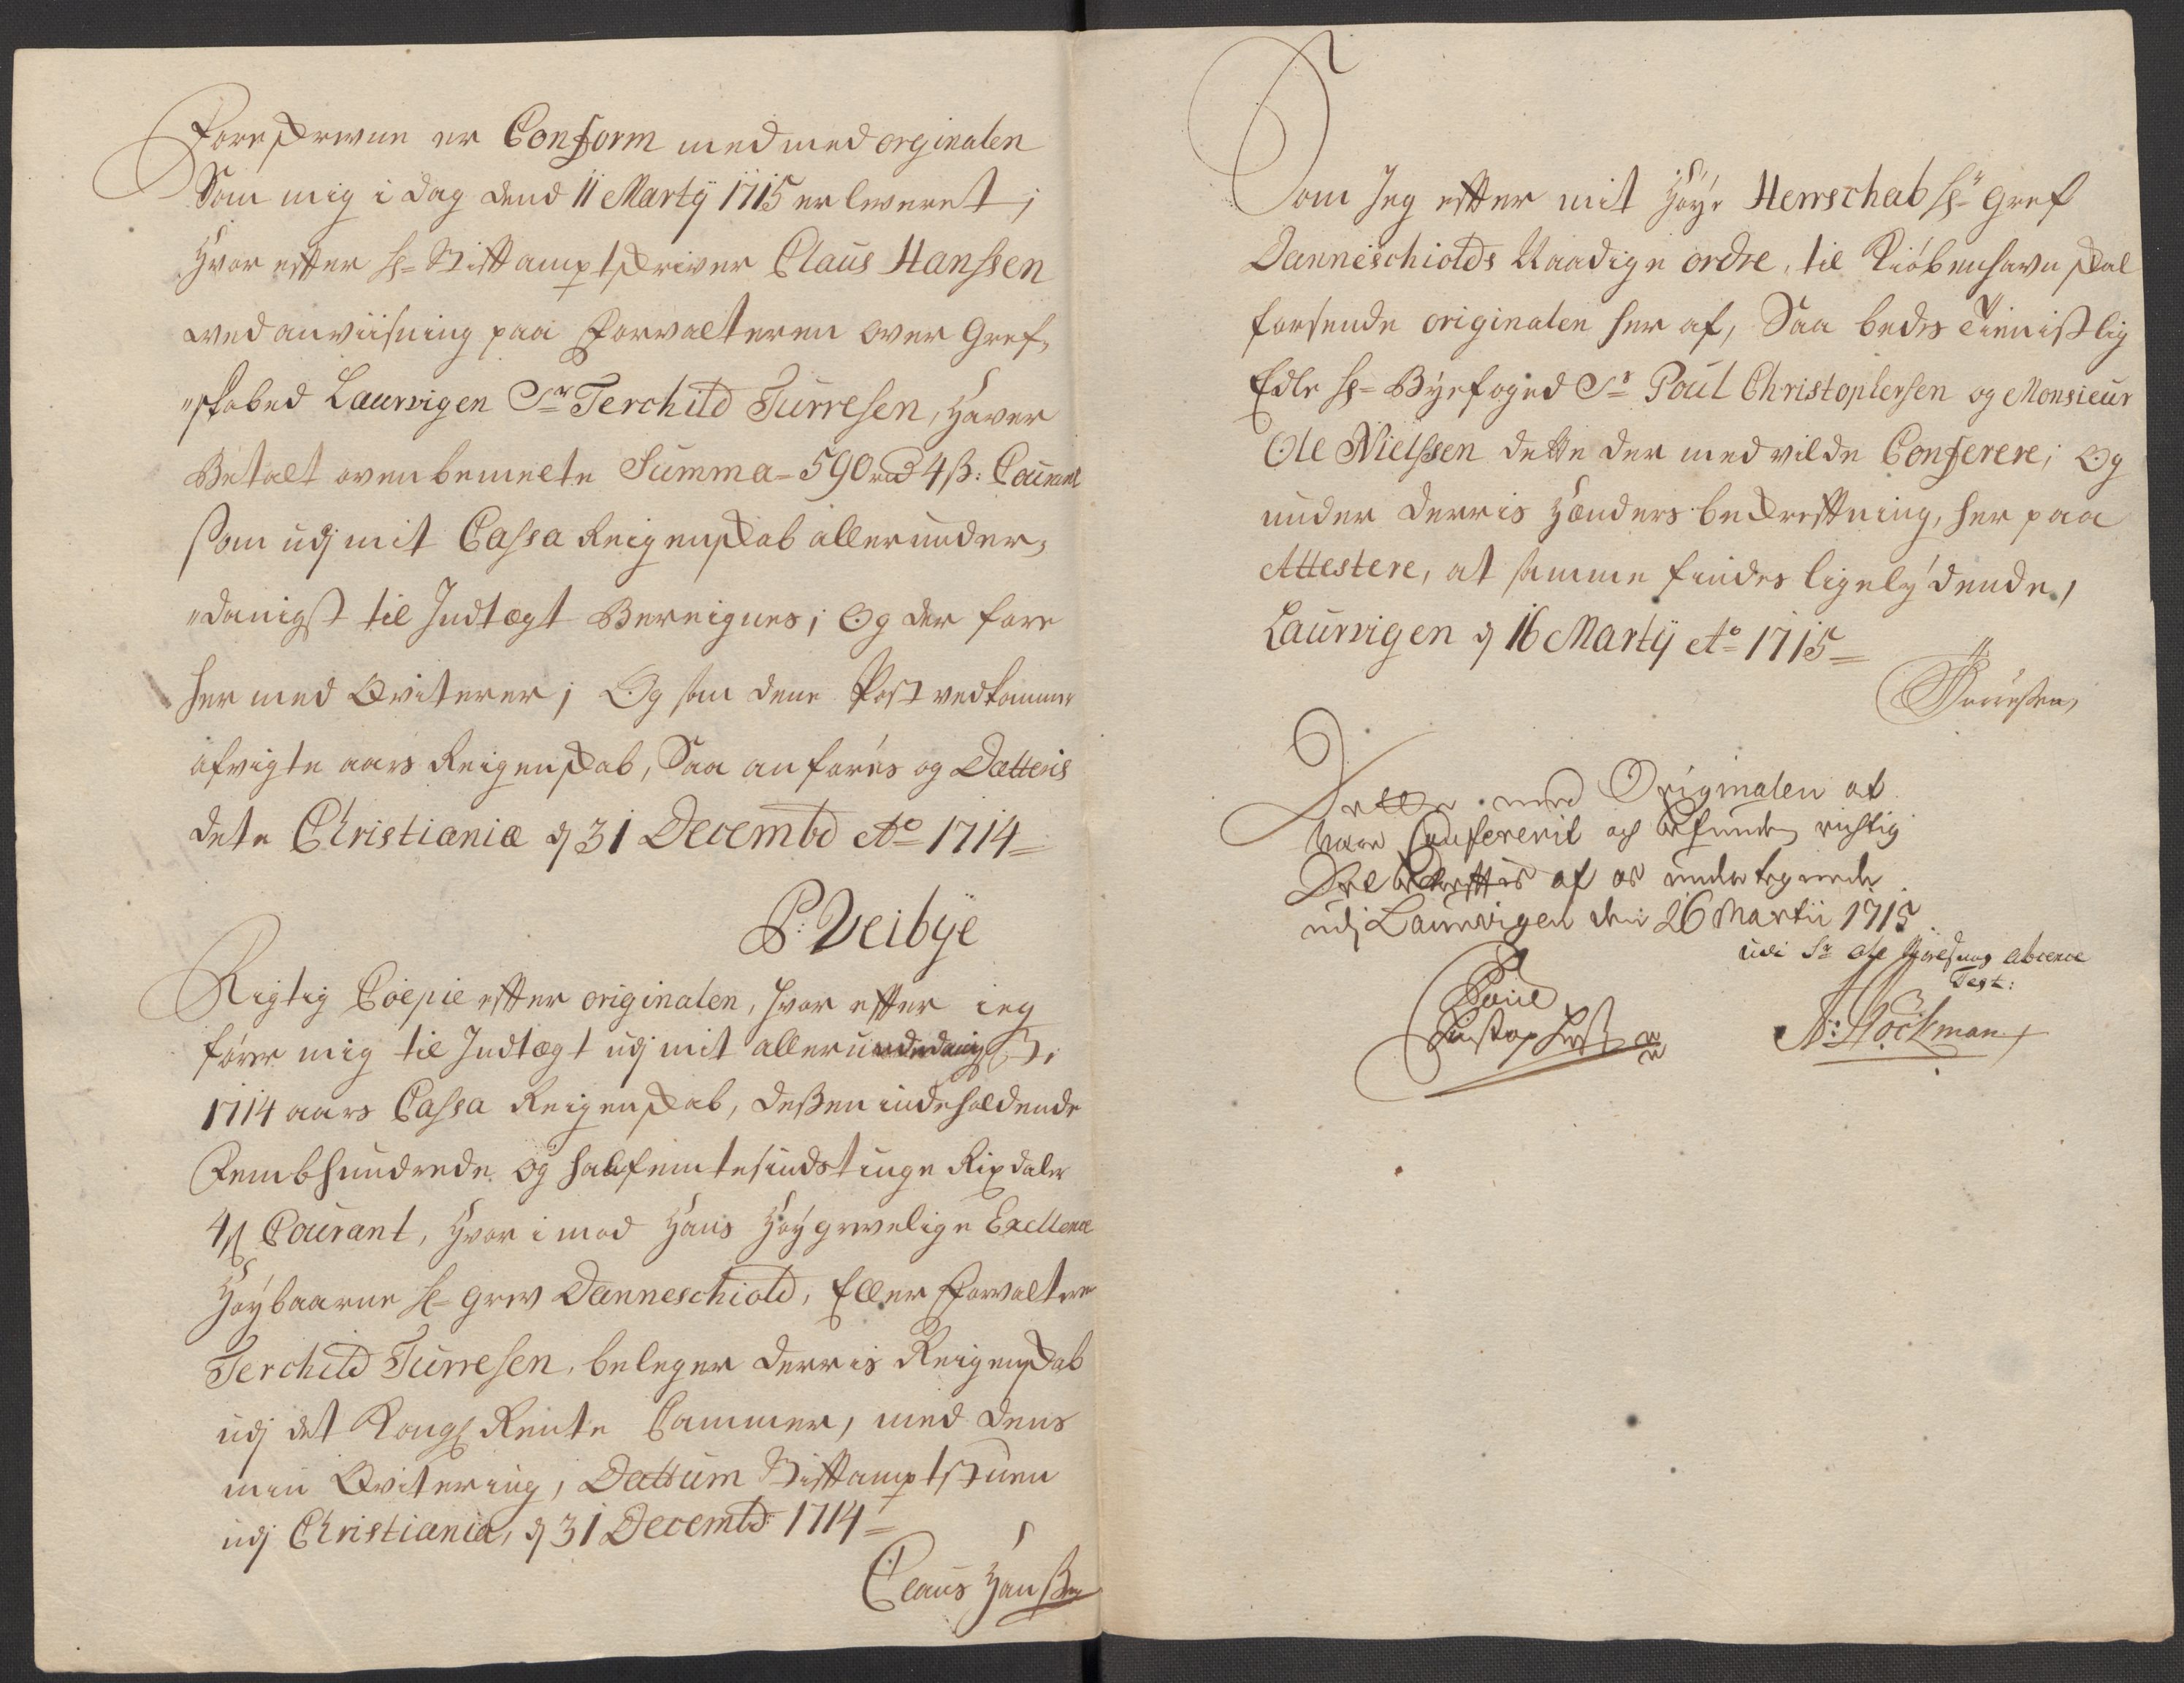 Foreskrevne er Conform med med orginalen
Som mig i dag dend 11 Marty 1715 er leveret;
Hvor efter Hr Stiftamptskriver Claus Hanssen
ved anviisning paa Forvalteren over Gref„
„skabed Laurvigen Sr Terchild Turresen, haver
Betalt ovenbemelte Summa = 590 rd 4 ß: Courant
som udj mit Cassa Reigenskab allerunder„
„danigst til Indtegt Bereignes; Og der fore
her med Qviterer; Og som dene Post vedkommer
afvigte aars Reigenskab, Saa anføres og Datteris
dete Christianiæ d 31 Decembr Ao 1714
P: Veibÿe
Rigtig Coepie efter originalen, hvor efter jeg
fører mig til Indtegt udj mit allerunderdanigst
1714 aars Cassa Reigenskab, dessen indeholdende
Fembhundrede og halfemtesindstiuge Rixdaler
4 ß Courant, hvor i mod Hans Høygrevelige Excellence
Høybaarne Hr Grev Danneschiold, Eller Forvalteren
Terchild Turresen, beleger derris Reigenskab
udj det Kongl Rente Cammer, med dens
min Qvitering, Dattum Stiftamptstuen
udj Christiania, d 31 Decembr 1714
Claus Hanssen
Som Jeg efter mit høye Herrschab Hr Gref
Danneschiolds Naadige ordre, til Kiøbenhavn skal
forsende originalen her af, Saa bedes tienistlig
Edle Hr Byefoged Sr Poul Christophersen og Monsieur
Ole Nielssen dette der med vilde Conferere; Og
under derris hænders bekreftning, her paa
Attestere, at samme findes ligelydende,
Laurvigen d 16 Martÿ Ao 1715
Turresen
Dette med Originalen at
være Confererit og befunden rigtig
Det bekreftis af os undertegnede
udj Laurvigen den 26 Martii 1715
udi Sr Ole Nielsens absence
Test:
Poul
Christophersen
N: Höckman